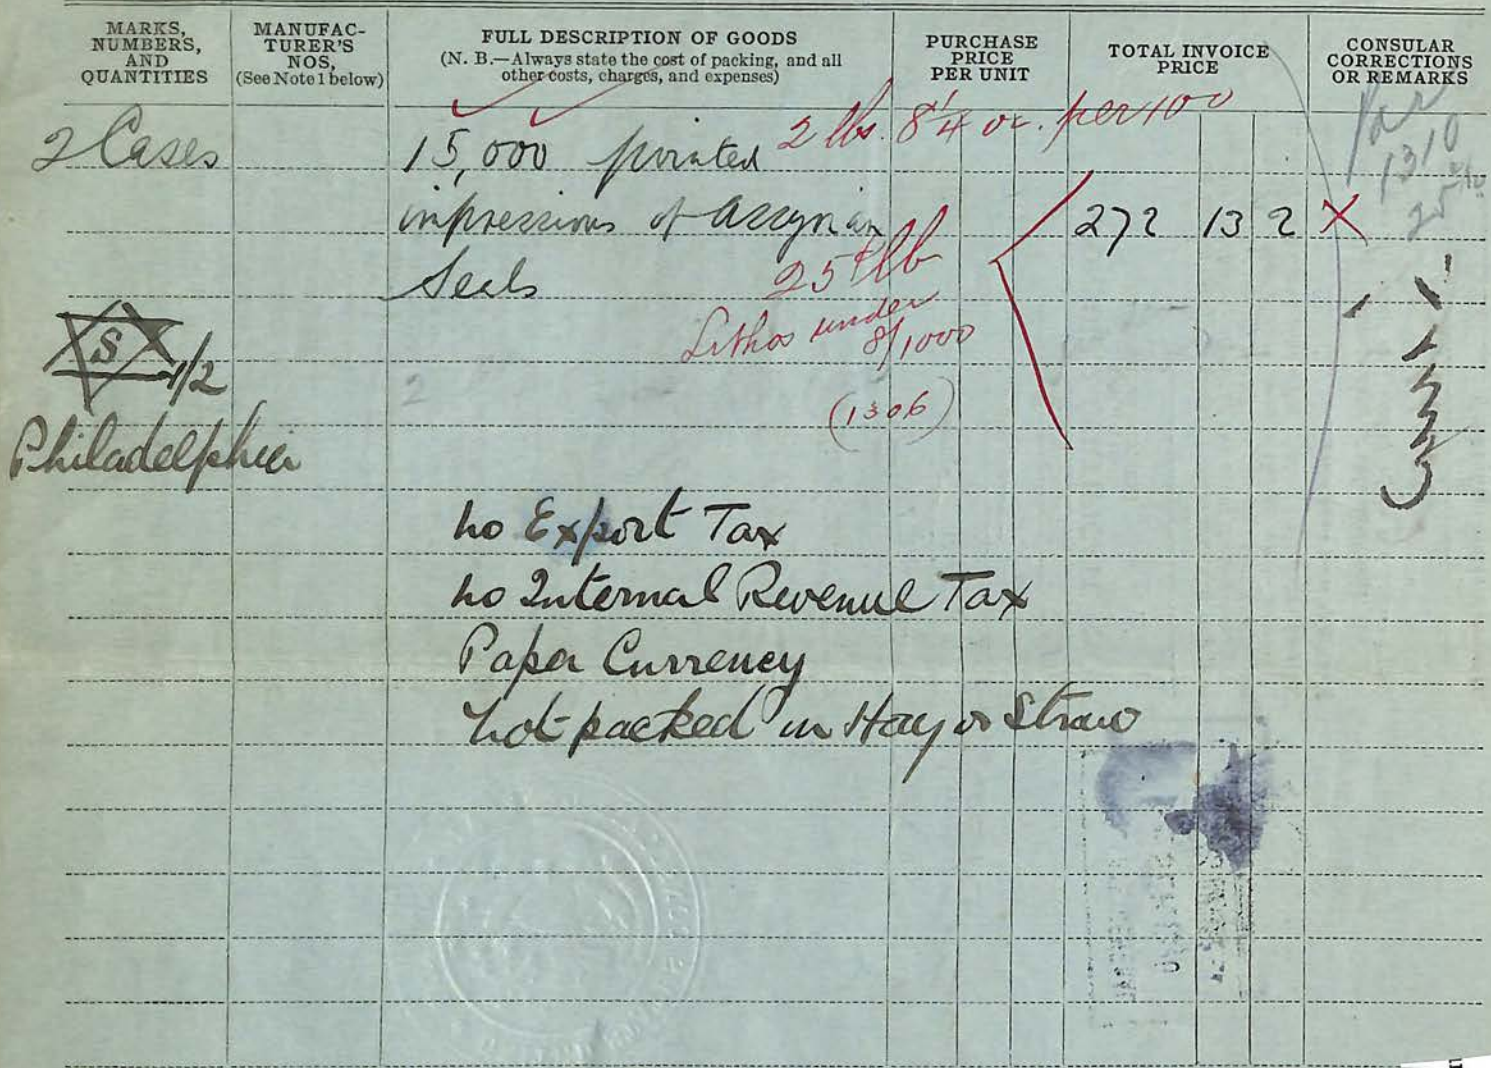 MARKS,
NUMBERS,
AND
QUANTITIES
MANUFAC-
TURER'S
NOS,
(See Note 1 below)
FULL DESCRIPTION OF GOODS
(N. B.—Always state the cost of packing, and all
other costs, charges, and expenses)
PURCHASE
PRICE
PER UNIT
TOTAL INVOICE
PRICE
CONSULAR
CORRECTIONS
OR REMARKS
2 Cases
15,000 printed
2 lbs. 8 1/4 oz. per 100
impressions of Assyrian
272 13 2 X
Seals
25 ¢ lb
Lithos under
8/1000
(1306)
1310
S
1/2
2
Philadelphia
no Export Tax
no Internal Revenue Tax
Paper Currency
not packed in Hay or Straw